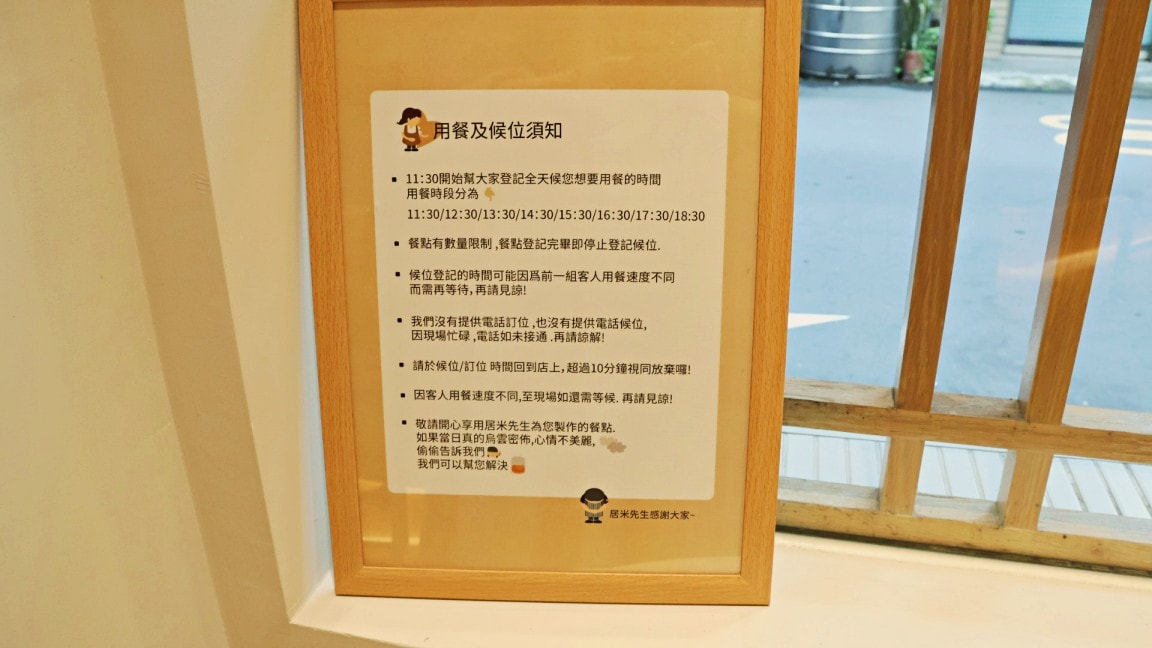 用餐及候位須知
11:30開始幫大家登記全天候您想要用餐的時間
用餐時段分為
11:30/12:30/13:30/14:30/15:30/16:30/17:30/18:30
餐點有數量限制,餐點登記完畢即停止登記候位.
候位登記的時間可能因爲前一組客人用餐速度不同
而需再等待,再請見諒!
我們沒有提供電話訂位,也沒有提供電話候位,
因現場忙碌,電話如未接通.再請諒解!
請於候位/訂位 時間回到店上,超過10分鐘視同放棄囉!
因客人用餐速度不同,至現場如還需等候.再請見諒!
敬請開心享用居米先生為您製作的餐點.
如果當日真的烏雲密佈,心情不美麗,
偷偷告訴我們
我們可以幫您解決
居米先生感謝大家~